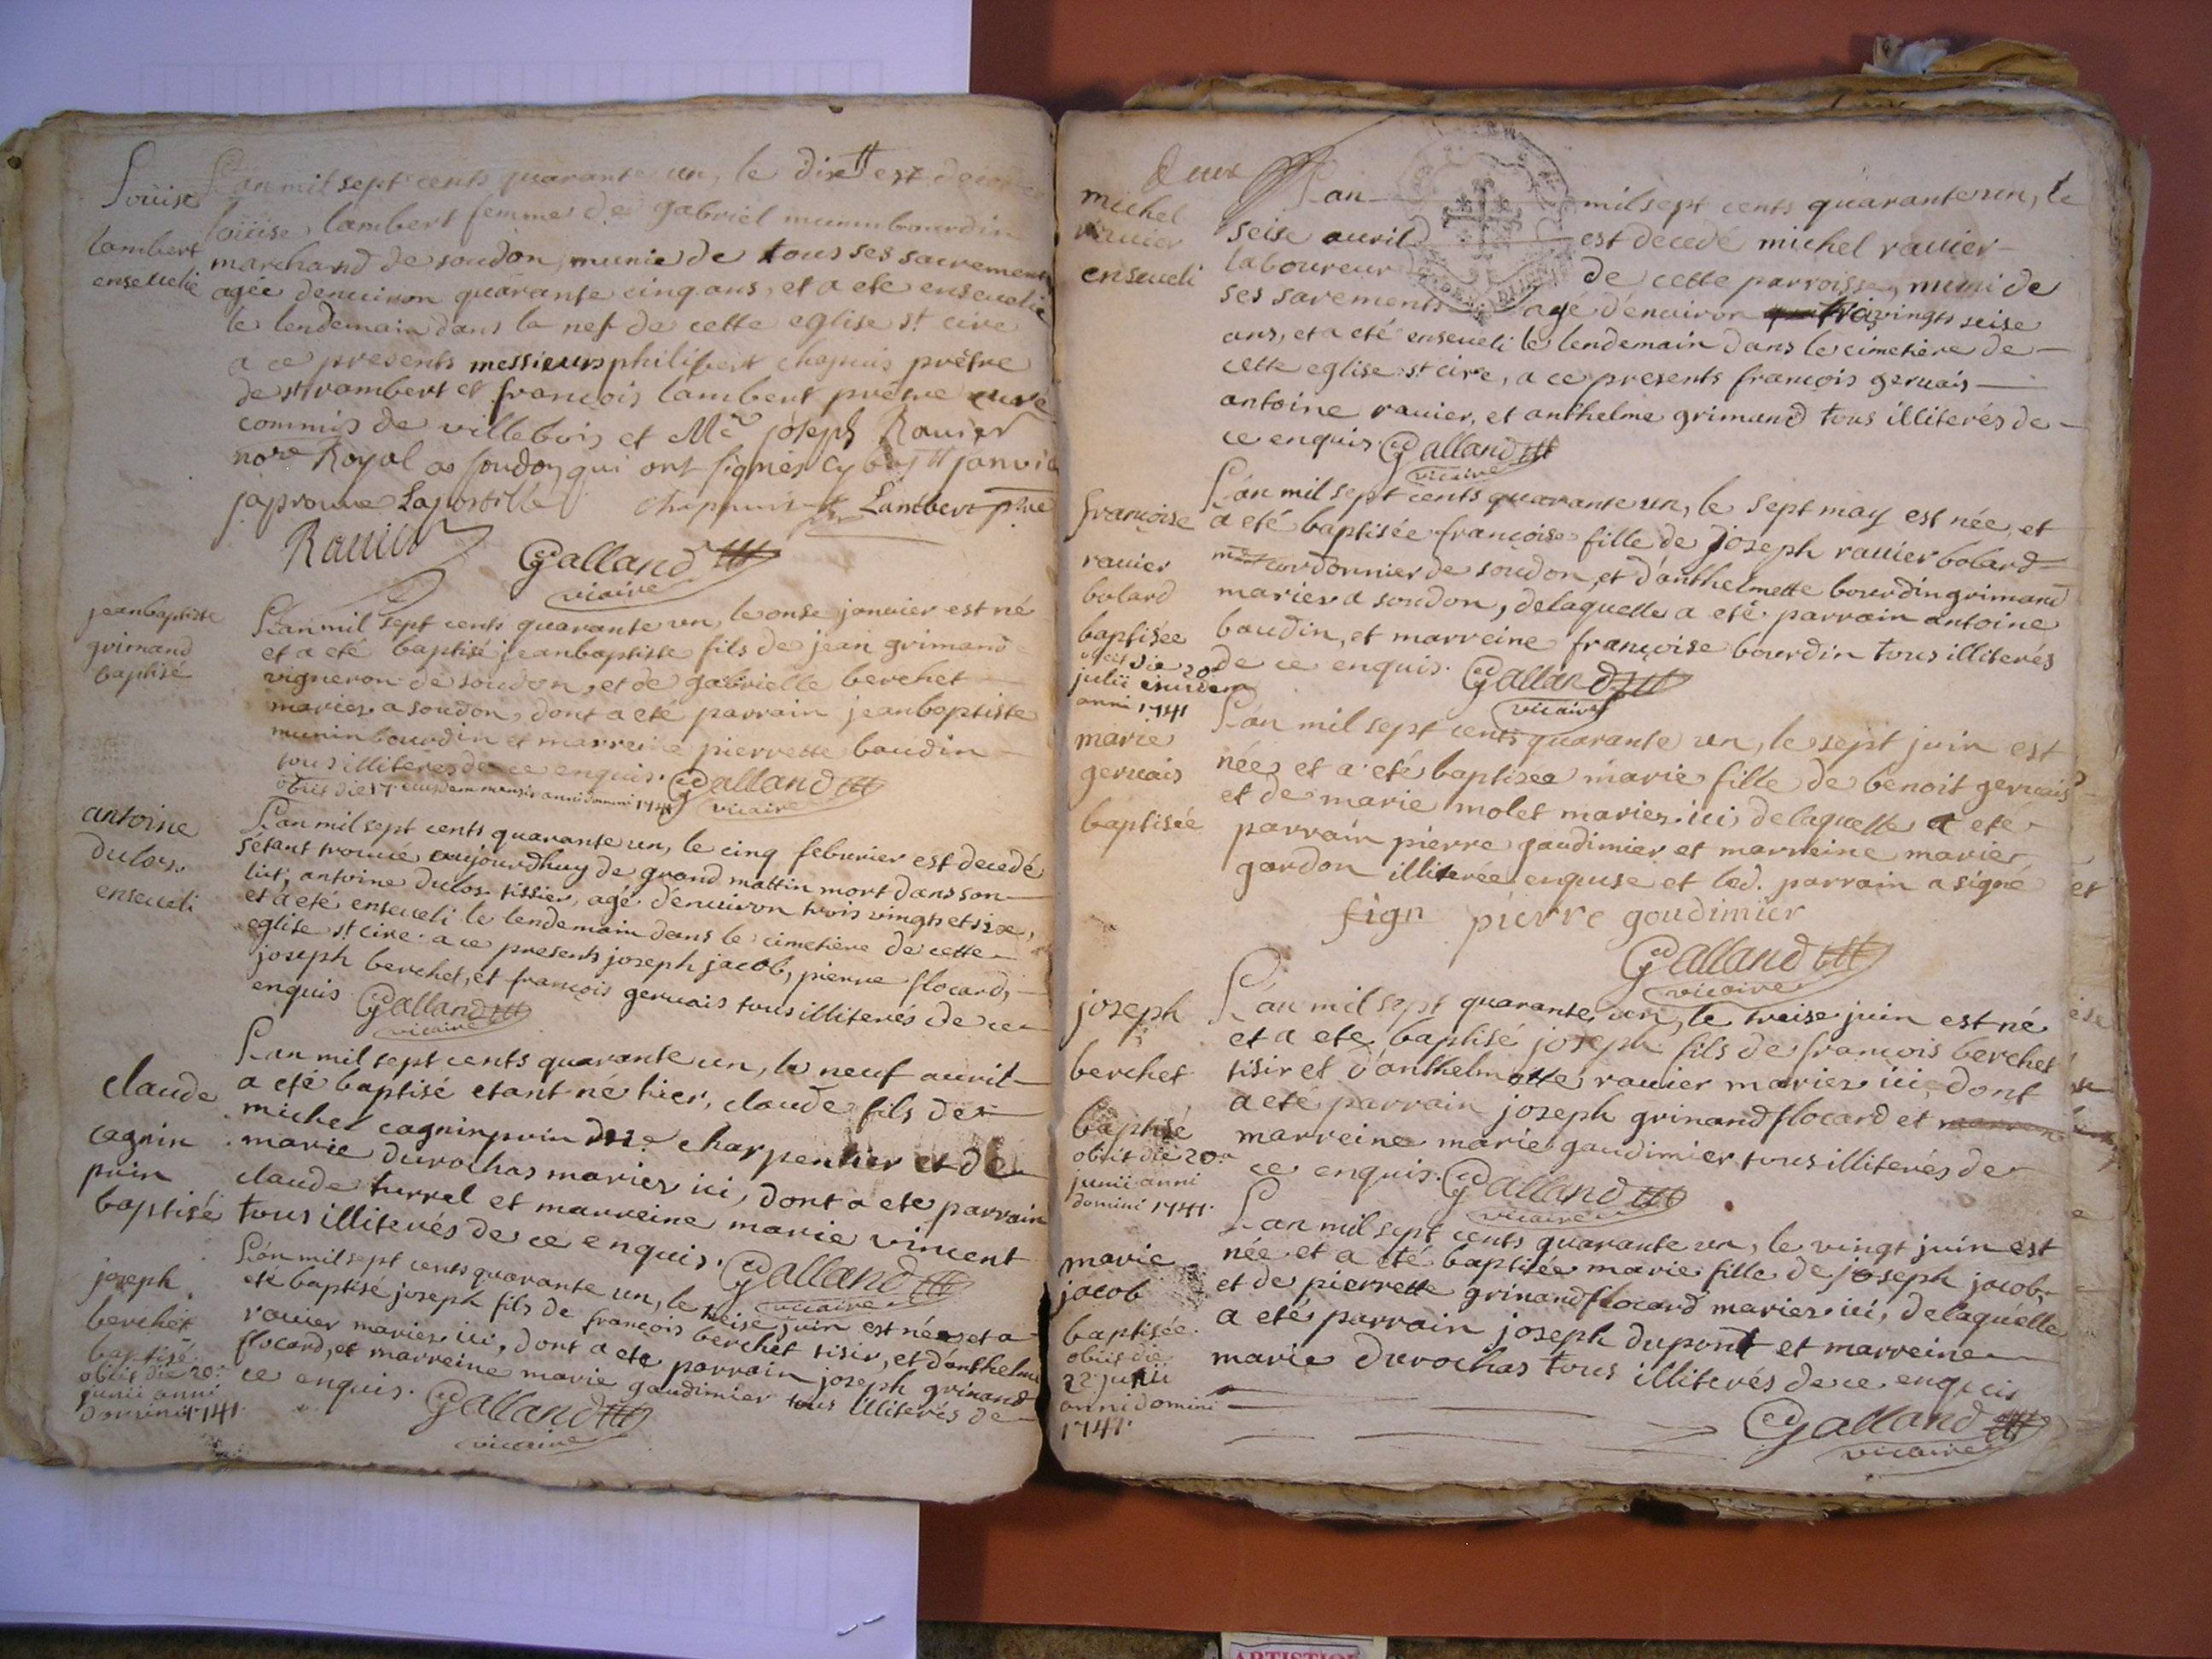 Louise
Lambert
ensevelie
L'an mil sept cents quarante un, le dix est
loüise lambert femme de gabriel muninbourdin
marchand de soudon, munie de tous ses sacrements
agée denuiron quarante cinq ans, et a eté enseuelie
le lendemain dans la nef de cette eglise st cire
a ce presents messieurs philibert chapuis prêtre
de st rambert et françois lambert prêtre curé
commis de villebois et Me joseph Rauier
nore Royal de soudon qui ont signés janvie
japrouue Lapostille chapuis Lambert ptre
Rauier Galland
vicaire
jeanbaptiste
grimand
baptisé
L'an mil sept cents quarante un, le onse januier est né
et a eté baptisé jeanbaptiste fils de jean grimand
vigneron de soudon, et de gabrielle berchet
mariez a soudon, dont a eté parrain jeanbaptiste
muninbourdin et marreine pierrette baudin
tous illiteres de ce enquis. Galland
obiit die 17 eiusdem mensis anni domini 1741 vicaire
antoine
duclos
enseueli
L'an mil sept cents quarante un, le cinq feburier est decedé
s'étant trouué aujourdhuy de grand mattin mort dans son
lict, antoine duclos tissier, agé d'enuiron trois vingts et sixe,
et a eté enseueli le lendemain dans le cimetiére de cette
eglise st cire. a ce presents joseph jacob, pierre flocard,
joseph berchet, et françois geruais tous illiterés de ce
enquis Galland
vicaire
claude
cagnin
puin
baptisé
L'an mil sept cents quarante un, le neuf auril
a eté baptisé etant né hier, claude fils de
michel cagninpuin charpentier et de
marie durochas mariez ici, dont a eté parrain
claude turrel et marreine marie vincent
tous illiterés de ce enquis. Galland
vicaire
joseph
berchet
baptisé
obiit die 20a
junii anni
domini 1741.
L'an mil sept cents quarante un, le treise juin est née et a
eté baptisé joseph fils de françois berchet tisir, et d'anthelme
rauier mariez ici, dont a eté parrain joseph grinand
flocard, et marreine marie gaudimier tous illiterés de
ce enquis. Galland
vicaire
deux
michel
rauier
enseueli
L'an mil sept cents quarante un, le
seise auril est decedé michel rauier
laboureur de cette parroisse, muni de
ses sacrements agé d'enuiron vingts seise
ans, et a eté enseueli le lendemain dans le cimetiére de
cette eglise st cire, a ce presents françois geruais
antoine rauier, et anthelme grimand tous illiterés de
ce enquis Galland
vicaire
françoise
rauier
bolard
baptisée
obiit die 20a
julii eiusdem
anni 1741
L'an mil sept cents quarante un, le sept may est née, et
a eté baptisée françoise fille de joseph rauier bolard
me cordonnier de soudon, et d'anthelmette bourdin grimand
mariez a soudon, de laquelle a eté parrain antoine
baudin, et marreine françoise bourdin tous illiterés
de ce enquis. Galland
vicaire
marie
geruais
baptisée
L'an mil sept cents quarante un, le sept juin est
née, et a eté baptisée marie fille de benoit geruais
et de marie molet mariez ici, de laquelle a eté
parrain pierre gaudimier et marreine marie
gardon illiterée enquise et led. parrain a signé
sign pierre goudimier
Galland
vicaire
joseph
berchet
baptisé
obiit die 20a
junii anni
domini 1741.
L'an mil sept quarante un, le treise juin est né
et a eté baptisé joseph fils de françois berchet
tisir et d'anthelmette rauier mariez ici, dont
a eté parrain joseph grinand flocard et
marreine marie gaudimier tous illiterés de
ce enquis. Galland
vicaire
marie
jacob
baptisée.
obiit die
22 junii
anni domini
1741.
L'an mil sept cents quarante un, le vingt juin est
née et a eté baptisée marie fille de joseph jacob,
et de pierrette grinand flocard mariez ici, de laquelle
a eté parrain joseph dupont et marreine
marie durochas tous illiterés de ce enquis
Galland
vicaire